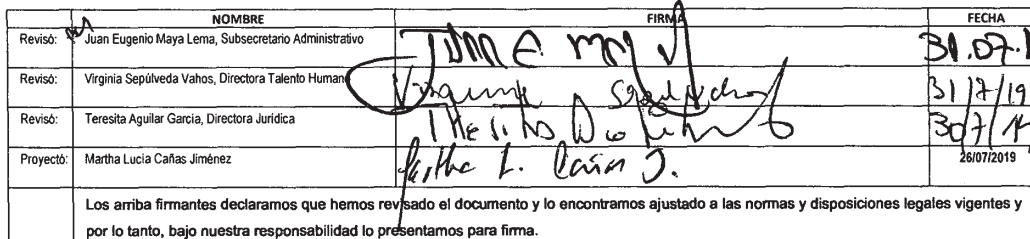 NOMBRE FIRMA FECHA
Revisó: Juan Eugenio Maya Lema, Subsecretario Administrativo 31.07.1
Revisó: Virginia Sepúlveda Vahos, Directora Talento Human Virginia Sepúlveda 31/7/19
Revisó: Teresita Aguilar García, Directora Jurídica Teresita 30/7/
Proyectó: Martha Lucía Cañas Jiménez Martha L. Cañas J. 26/07/2019
Los arriba firmantes declaramos que hemos revisado el documento y lo encontramos ajustado a las normas y disposiciones legales vigentes y
por lo tanto, bajo nuestra responsabilidad lo presentamos para firma.